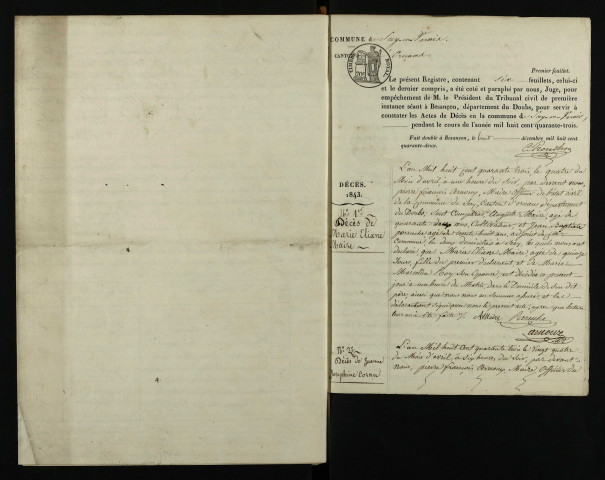 COMMUNE de Scey-en-Varais
CANTON Ornans
TIMBRE ROYAL
Premier feuillet.
Le présent Registre, contenant six feuillets, celui-ci
et le dernier compris, a été coté et paraphé par nous, Juge, pour
empêchement de M. le Président du Tribunal civil de première
instance séant à Besançon, département du Doubs, pour servir à
constater les Actes de Décès en la commune de Scey-en-Varais,
pendant le cours de l'année mil huit cent quarante-trois.
Fait double à Besançon, le huit décembre mil huit cent
quarante-deux.
DÉCÈS.
1843.
N° 1er
Décès de
Marie Eliane
Maire
L'an Mil huit cent quarante trois, le quatre du
Mois d'avril à une heure du Soir, par devant nous,
pierre françois Maire Officier de l'état civil
de la Commune de Scey, Canton d'ornans département
du Doubs, Sont Comparus, Auguste Maire, âgé de
quarante ans, Cultivateur, et Jean Baptiste
âgé de trente huit ans, adjoint de
Commune, les deux domiciliés à Scey, les quels nous ont
déclaré, que Marie Eliane Maire, âgée de quinze
Jours, fille du premier déclarant et de Marie
Roy Son Epouse, est décédée ce présent
jour à heure du Matin, dans le Domicile de Son dit
père, ainsi que nous nous en sommes assuré, et les
déclarants ont signé avec nous le présent acte, après que lecture
leur en a été faite
AMaire
N° 2
Décès de Jeanne
Josephine
L'an Mil huit Cent quarante trois le vingt quatre
du Mois d'avril, à Six heures du Soir, par devant
nous, pierre françois Maire Officier de